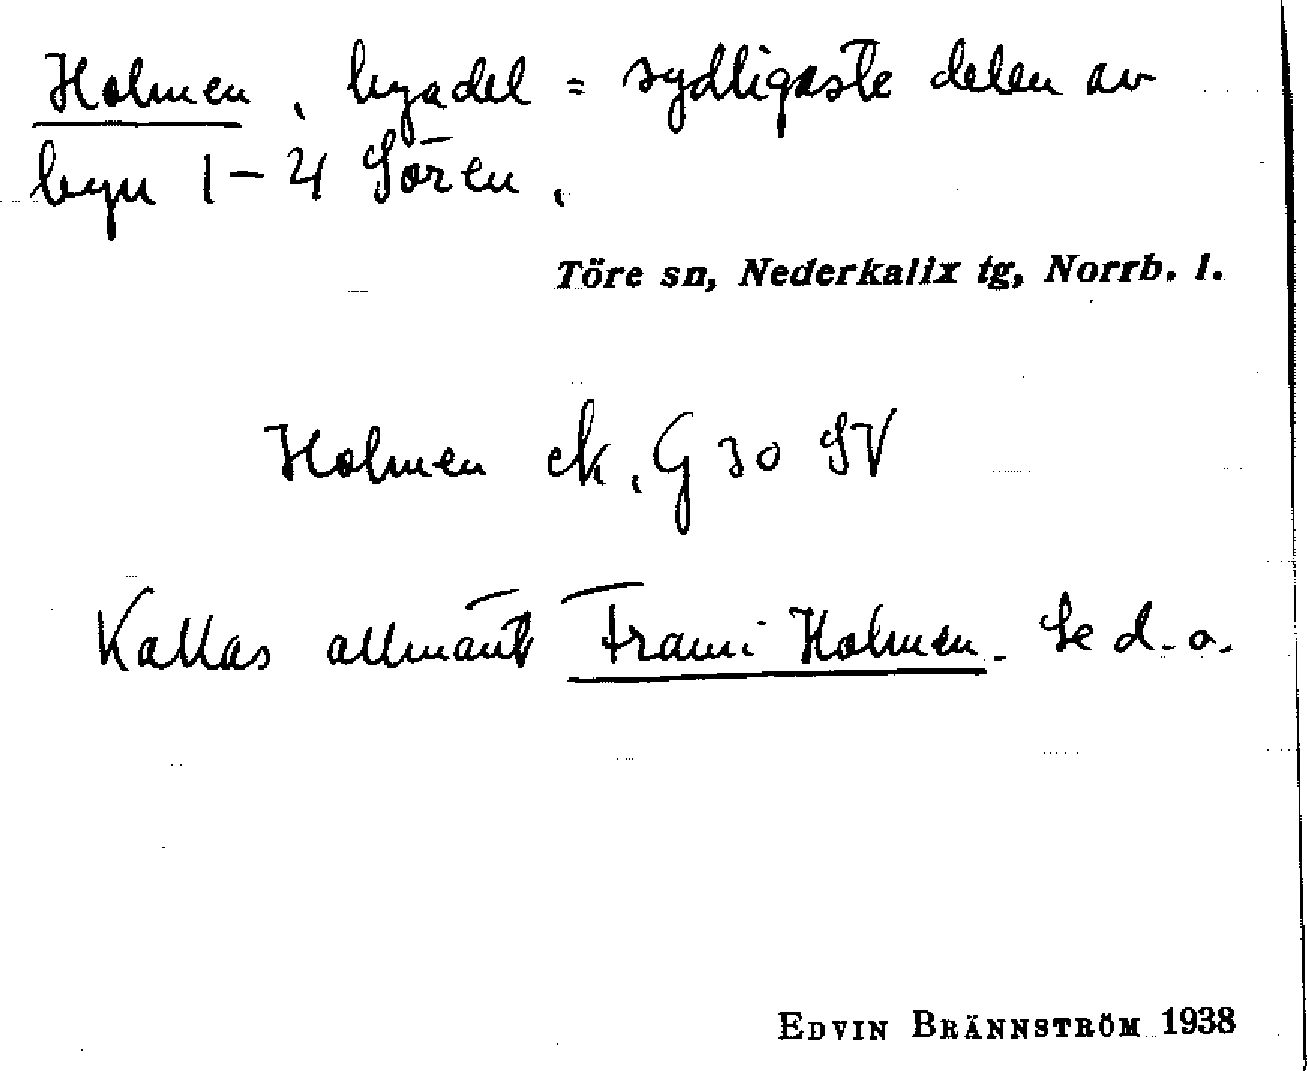 Holmen, byadel = sydligaste delen av
byn 1-4 Sören.
Töre sn, Nederkalix tg, Norrb. l.
Holmen ek. G 30 SV
Kallas allmänt Frami Holmen. Se d.o.
EDVIN BRÄNNSTRÖM 1938